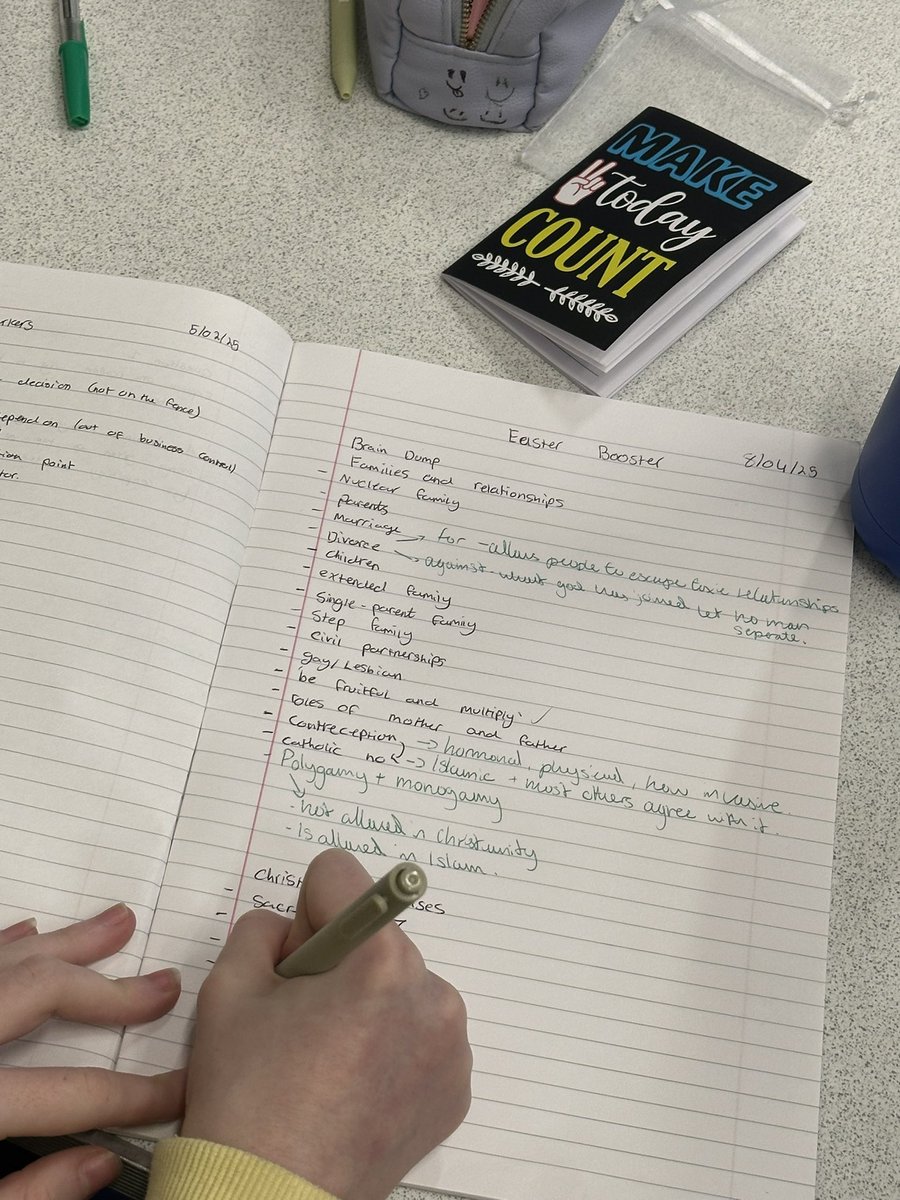 MAKE
today
COUNT
5/02/25
decision (not on the fence)
(out of business control)
point
Easter Booster 8/04/25
Brain Dump
Families and relationships
- Nuclear family
- parents
- Marriage
- Divorce → for - allows people to escape toxic relationships
→ against - what god has joined let no man
seperate.
- children
- extended family
- Single-parent family
- Step family
- civil partnerships
- gay/Lesbian
- be fruitful and multiply ✓
- roles of mother and father
- Contreception → hormonal, physical, how invasive.
- Catholic no → Islamic + most others agree with it.
Polygamy + monogamy
- not allowed in Christianity
- Is allowed in Islam.